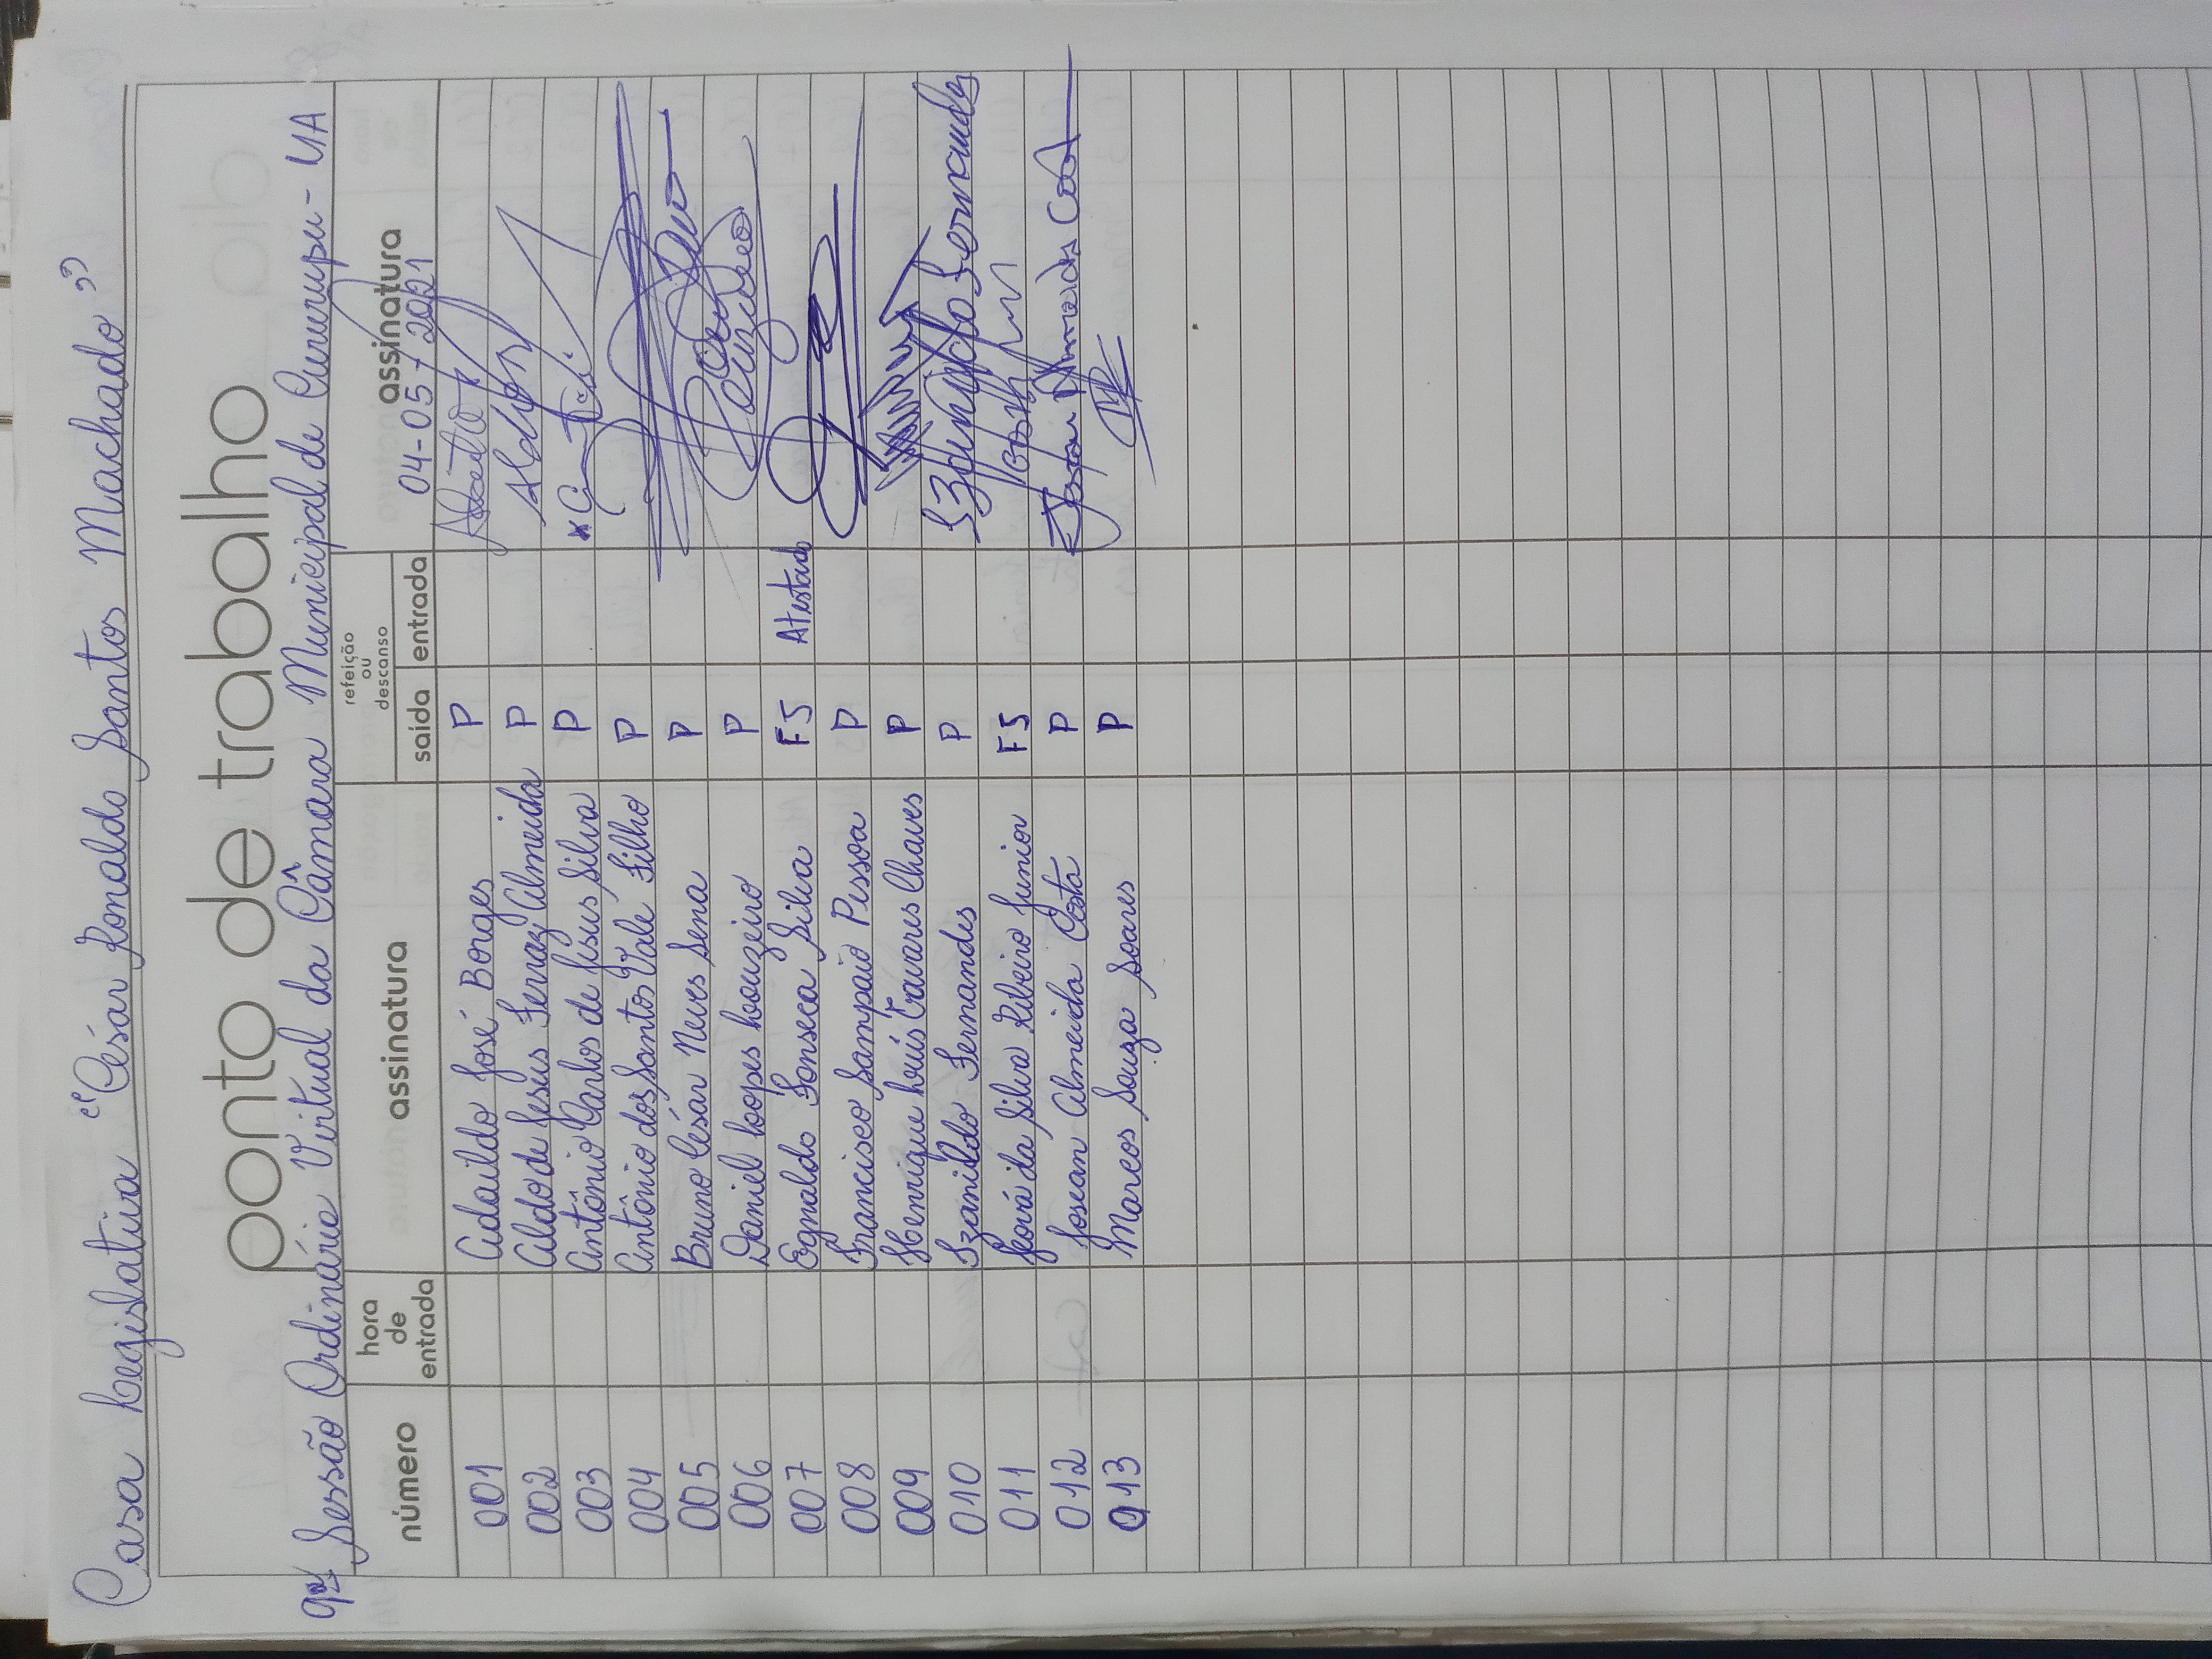 Casa Legislativa "César Ronaldo Santos Machado"
ponto de trabalho
9ª Sessão Ordinária Virtual da Câmara Municipal de Cururupu-MA
número hora de entrada assinatura refeição ou descanso saída entrada assinatura
04-05-2021
001 Adaildo José Borges P
002 Aldo de Jesus Ferraz Almeida P
003 Antônio Carlos de Jesus Silva P
004 Antônio dos Santos Vale Filho P
005 Bruno César Neves Sena P
006 Daniel Lopes Louzeiro P Louzeiro
007 Egnaldo Fonseca Silva FJ Atestado
008 Francisco Sampaio Pessoa P
009 Henrique Luís Tavares Chaves P
010 Izanildo Fernandes P Izanildo Fernandes
011 Jeová da Silva Ribeiro Junior FJ
012 Josean Almeida Costa P Josean Almeida Costa
013 Marcos Souza Soares P